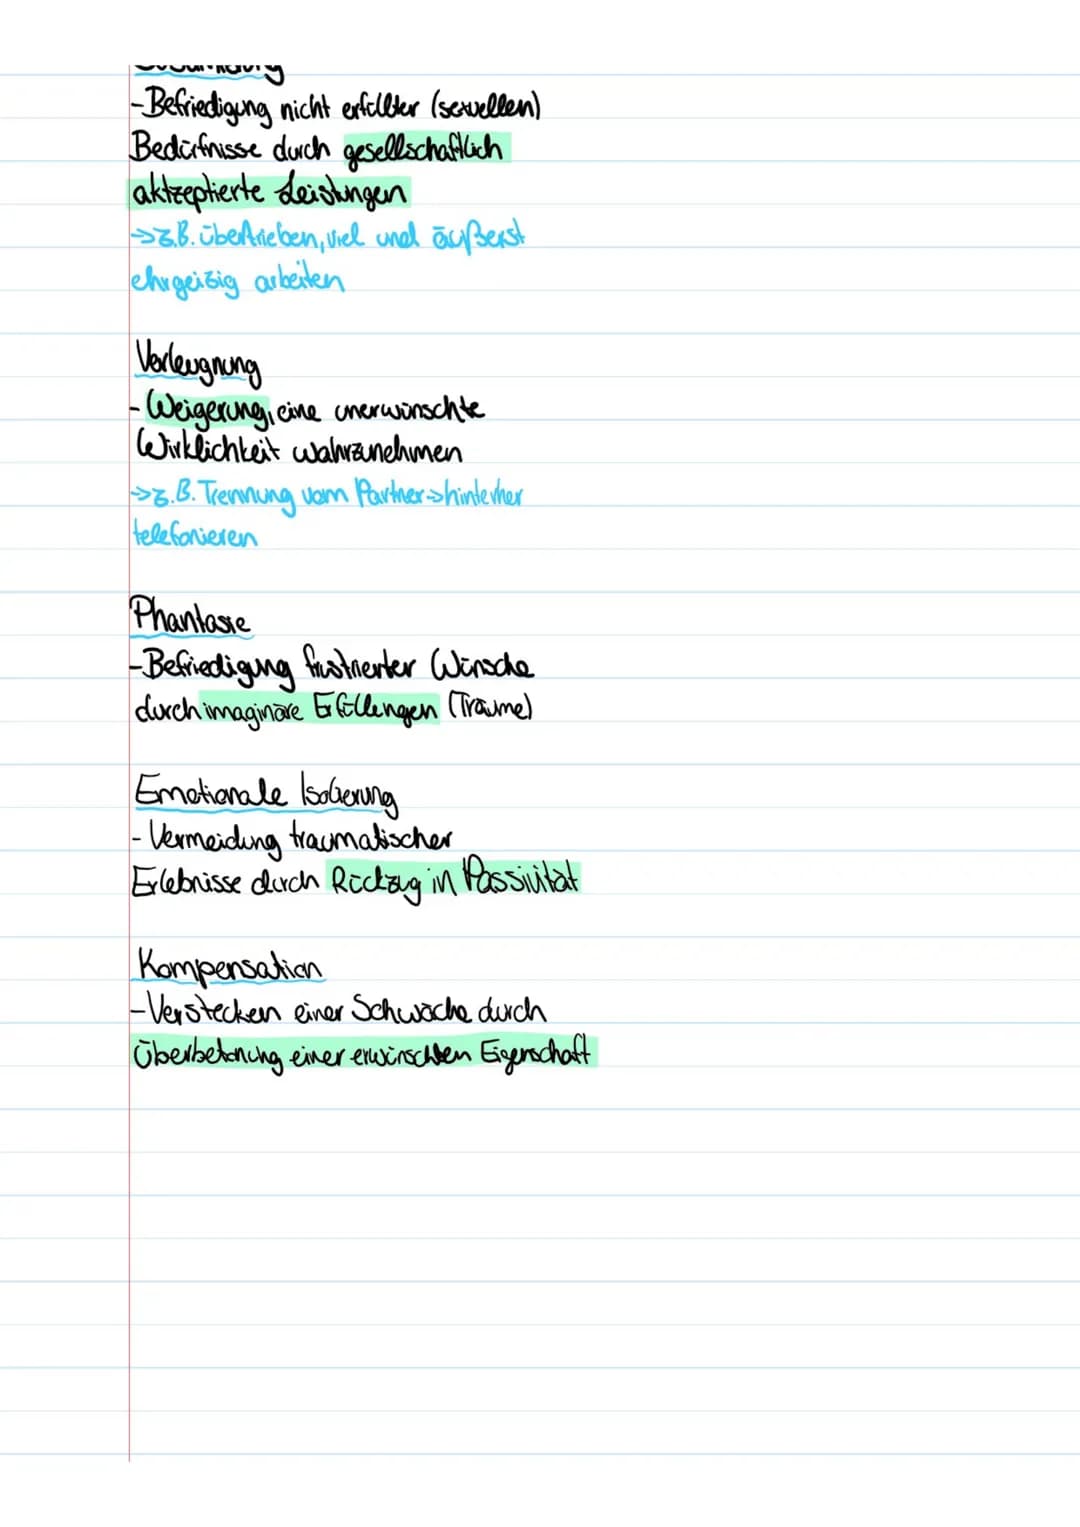 -Befriedigung nicht erfüllter (sexuellen)
Bedürfnisse durch gesellschaftlich
aktzeptierte Leistungen
->z.B. übertrieben, viel und äußerst
ehrgeizig arbeiten
Verleugnung
- Weigerung, eine unerwünschte
Wirklichkeit wahrzunehmen
->z.B. Trennung vom Partner->hinterher
telefonieren
Phantasie
-Befriedigung frustrierter Wünsche
durch imaginäre Erfüllungen (Träume)
Emotionale Isolierung
- Vermeidung traumatischer
Erlebnisse durch Rückzug in Passivität
Kompensation
-Verstecken einer Schwäche durch
Überbetonung einer erwünschten Eigenschaft